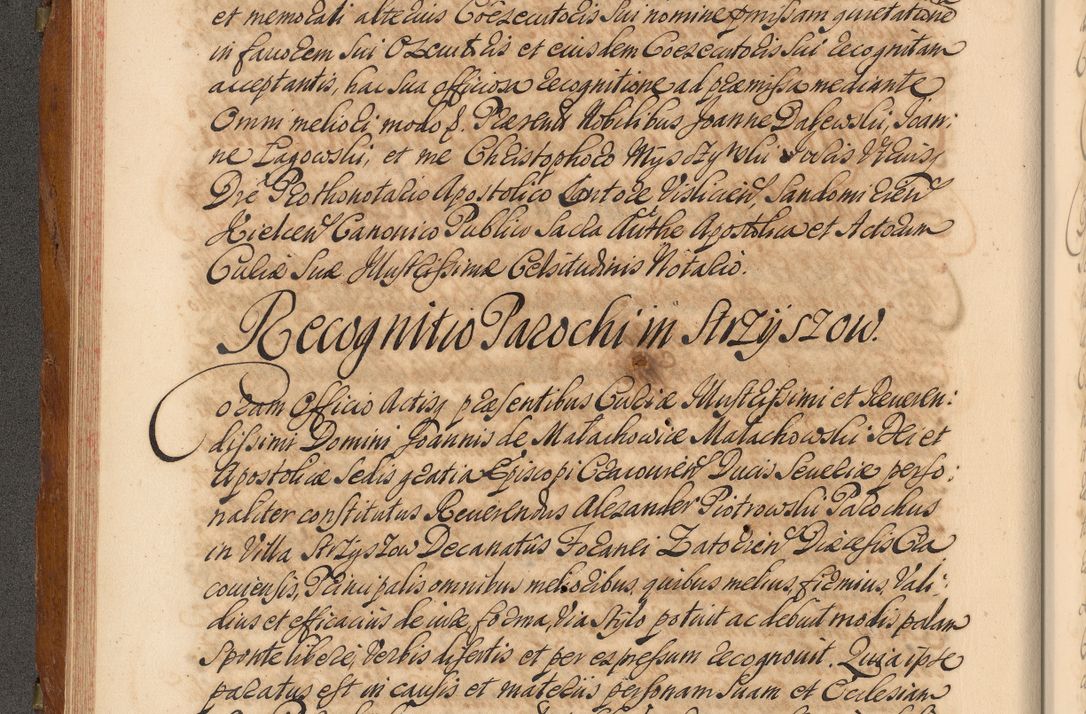 et memorati alterius Coexecutoris sui nomine promissam quietatione
in fauorem sui Oxecutoris et eiusdem Coexecutoris sui recognitam
acceptantis, hac sua officiosa recognitione ad præmissa mediante
Omni meliori modo &. Præsent Nobilibus Joanne Dalewski, Joan:
ne Lagowski, et me Christophoro Mysszkowski Juris Vtriusq
Dre Prothonotario Apostolico Cantore Visliciensi, Sandomirien
Kielcen Canonico Publico Sacra Authe Apostolica et Actorum
Curiæ Suæ Illustrissimæ Celsitudinis Notario.
Recognitio Parochi in Strzyszow.
Coram Officio Actisq præsentibus Curiæ Illustrissimi et Reueren:
dissimi Domini Joannis de Małachowice Małachowski Dei et
Apostolicæ Sedis gratia Episcopi Cracouien Ducis Seueriæ perso:
naliter constitutus Reuerendus Alexander Piotrowski Parochus
in Villa Strzyszow Decanatûs Foranei Zatorien Diæcesis Cra
couiensis, Principalis omnibus melioribus, quibus melius, firmius, Vali:
dius et efficacius de iure, forma, Via stylo potuit ac debuit modis palam
sponte libere, Verbis disertis et per expressum recognouit. Quia ipse
paratus est in causis et materiis personam suam et Ecclesiam